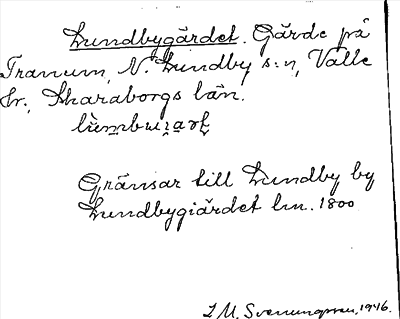 Lundbygärdet. Gärde på
Tranum, N. Lundby s:n, Valle
hr., Skaraborgs län.
Gränsar till Lundby by
Lundbygiärdet lm. 1800
S. M. Svenungsson, 1946.